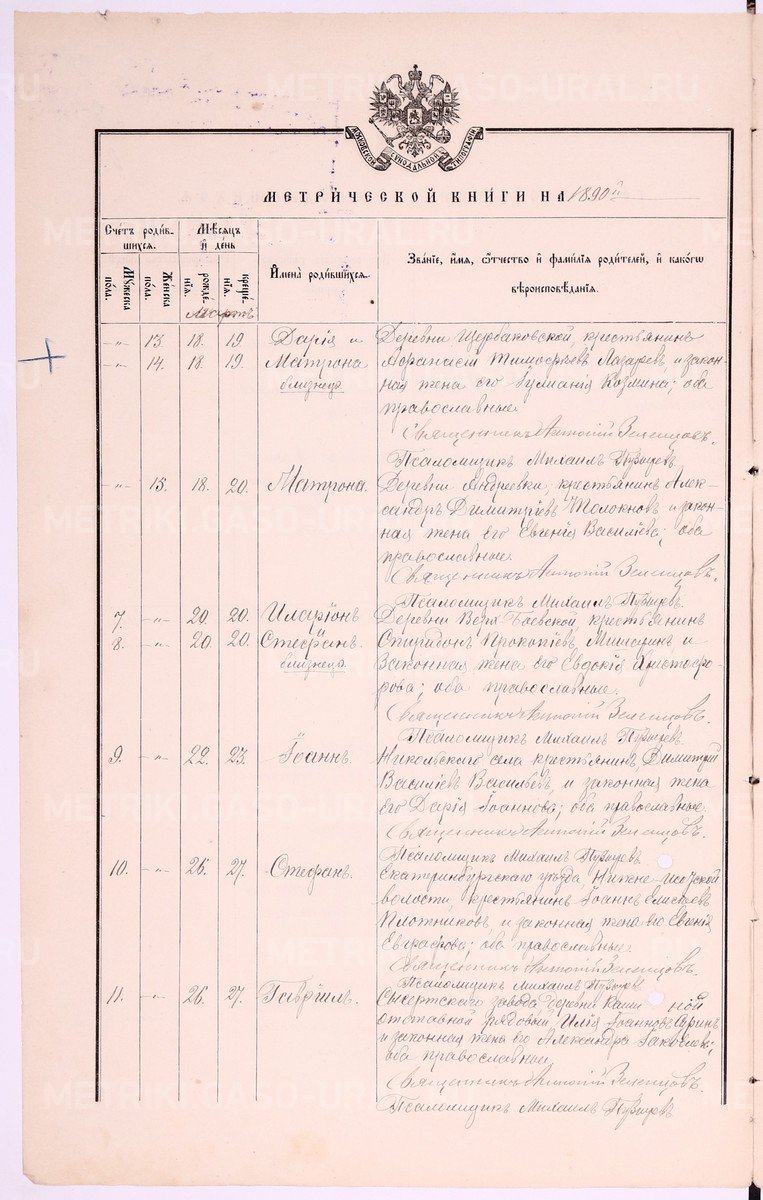 МОСКОВСКОЙ СѴНОДАЛЬНОЙ ТИПОГРАФІИ
МЕТРИЧЕСКОЙ КНИГИ НА 1890й
Счетъ родив-
шихся.
Мѣсяцъ
и день
Имена родившихся.
Званіе, имя, отчество и фамилія родителей, и какого
вѣроисповѣданія.
Мужеска
пола.
Женска
пола.
рожде-
нія.
креще-
нія.
Мартъ
-"- 13. 18. 19. Дарія и Деревни Щербаковской, крестьянинъ
-"- 14. 18. 19. Матрона Афанасій Тимофеевъ Лазаревъ, и закон-
близнецы ная жена его Іуліанія Козмина; оба
православные.
Священникъ Антоній Зеленцовъ.
Псаломщикъ Михаилъ
-"- 15. 18. 20. Матрона. Деревни Андреевки, крестьянинъ Алек-
сандръ Димитріевъ Толокновъ и закон-
ная жена его Евгенія Василіева; оба
православные.
Священникъ Антоній Зеленцовъ.
Псаломщикъ Михаилъ
7. -"- 20. 20. Иларіонъ Деревни Верх Боевской, крестьянинъ
8. -"- 20. 20. Стефанъ. Спиридонъ Прокопіевъ и
близнецы. законная жена его Евдокія Христофо-
рова; оба православные.
Священникъ Антоній Зеленцовъ.
Псаломщикъ Михаилъ
9. -"- 22. 23. Іоаннъ. Никольскаго села крестьянинъ, Димитрій
Василіевъ Васильевъ, и законная жена
его Дарія Іоаннова; оба православные.
Священникъ Антоній Зеленцовъ.
Псаломщикъ Михаилъ
10. -"- 26. 27. Стефанъ. Екатеринбургскаго уѣзда, Нижне-Исетской
волости, крестьянинъ Іоаннъ Елисѣевъ
Плотниковъ, и законная жена его Евгенія
Евграфова; оба православные.
Священникъ Антоній Зеленцовъ.
Псаломщикъ Михаилъ
11. -"- 26. 27. Гавріилъ. Сысертскаго завода деревни Каши ной
отставной рядовой Илія Іоанновъ Суринъ
и законная жена его Александра Іаковлева;
оба православные.
Священникъ Антоній Зеленцовъ.
Псаломщикъ Михаилъ
METRIKI.GASO-URAL.RU